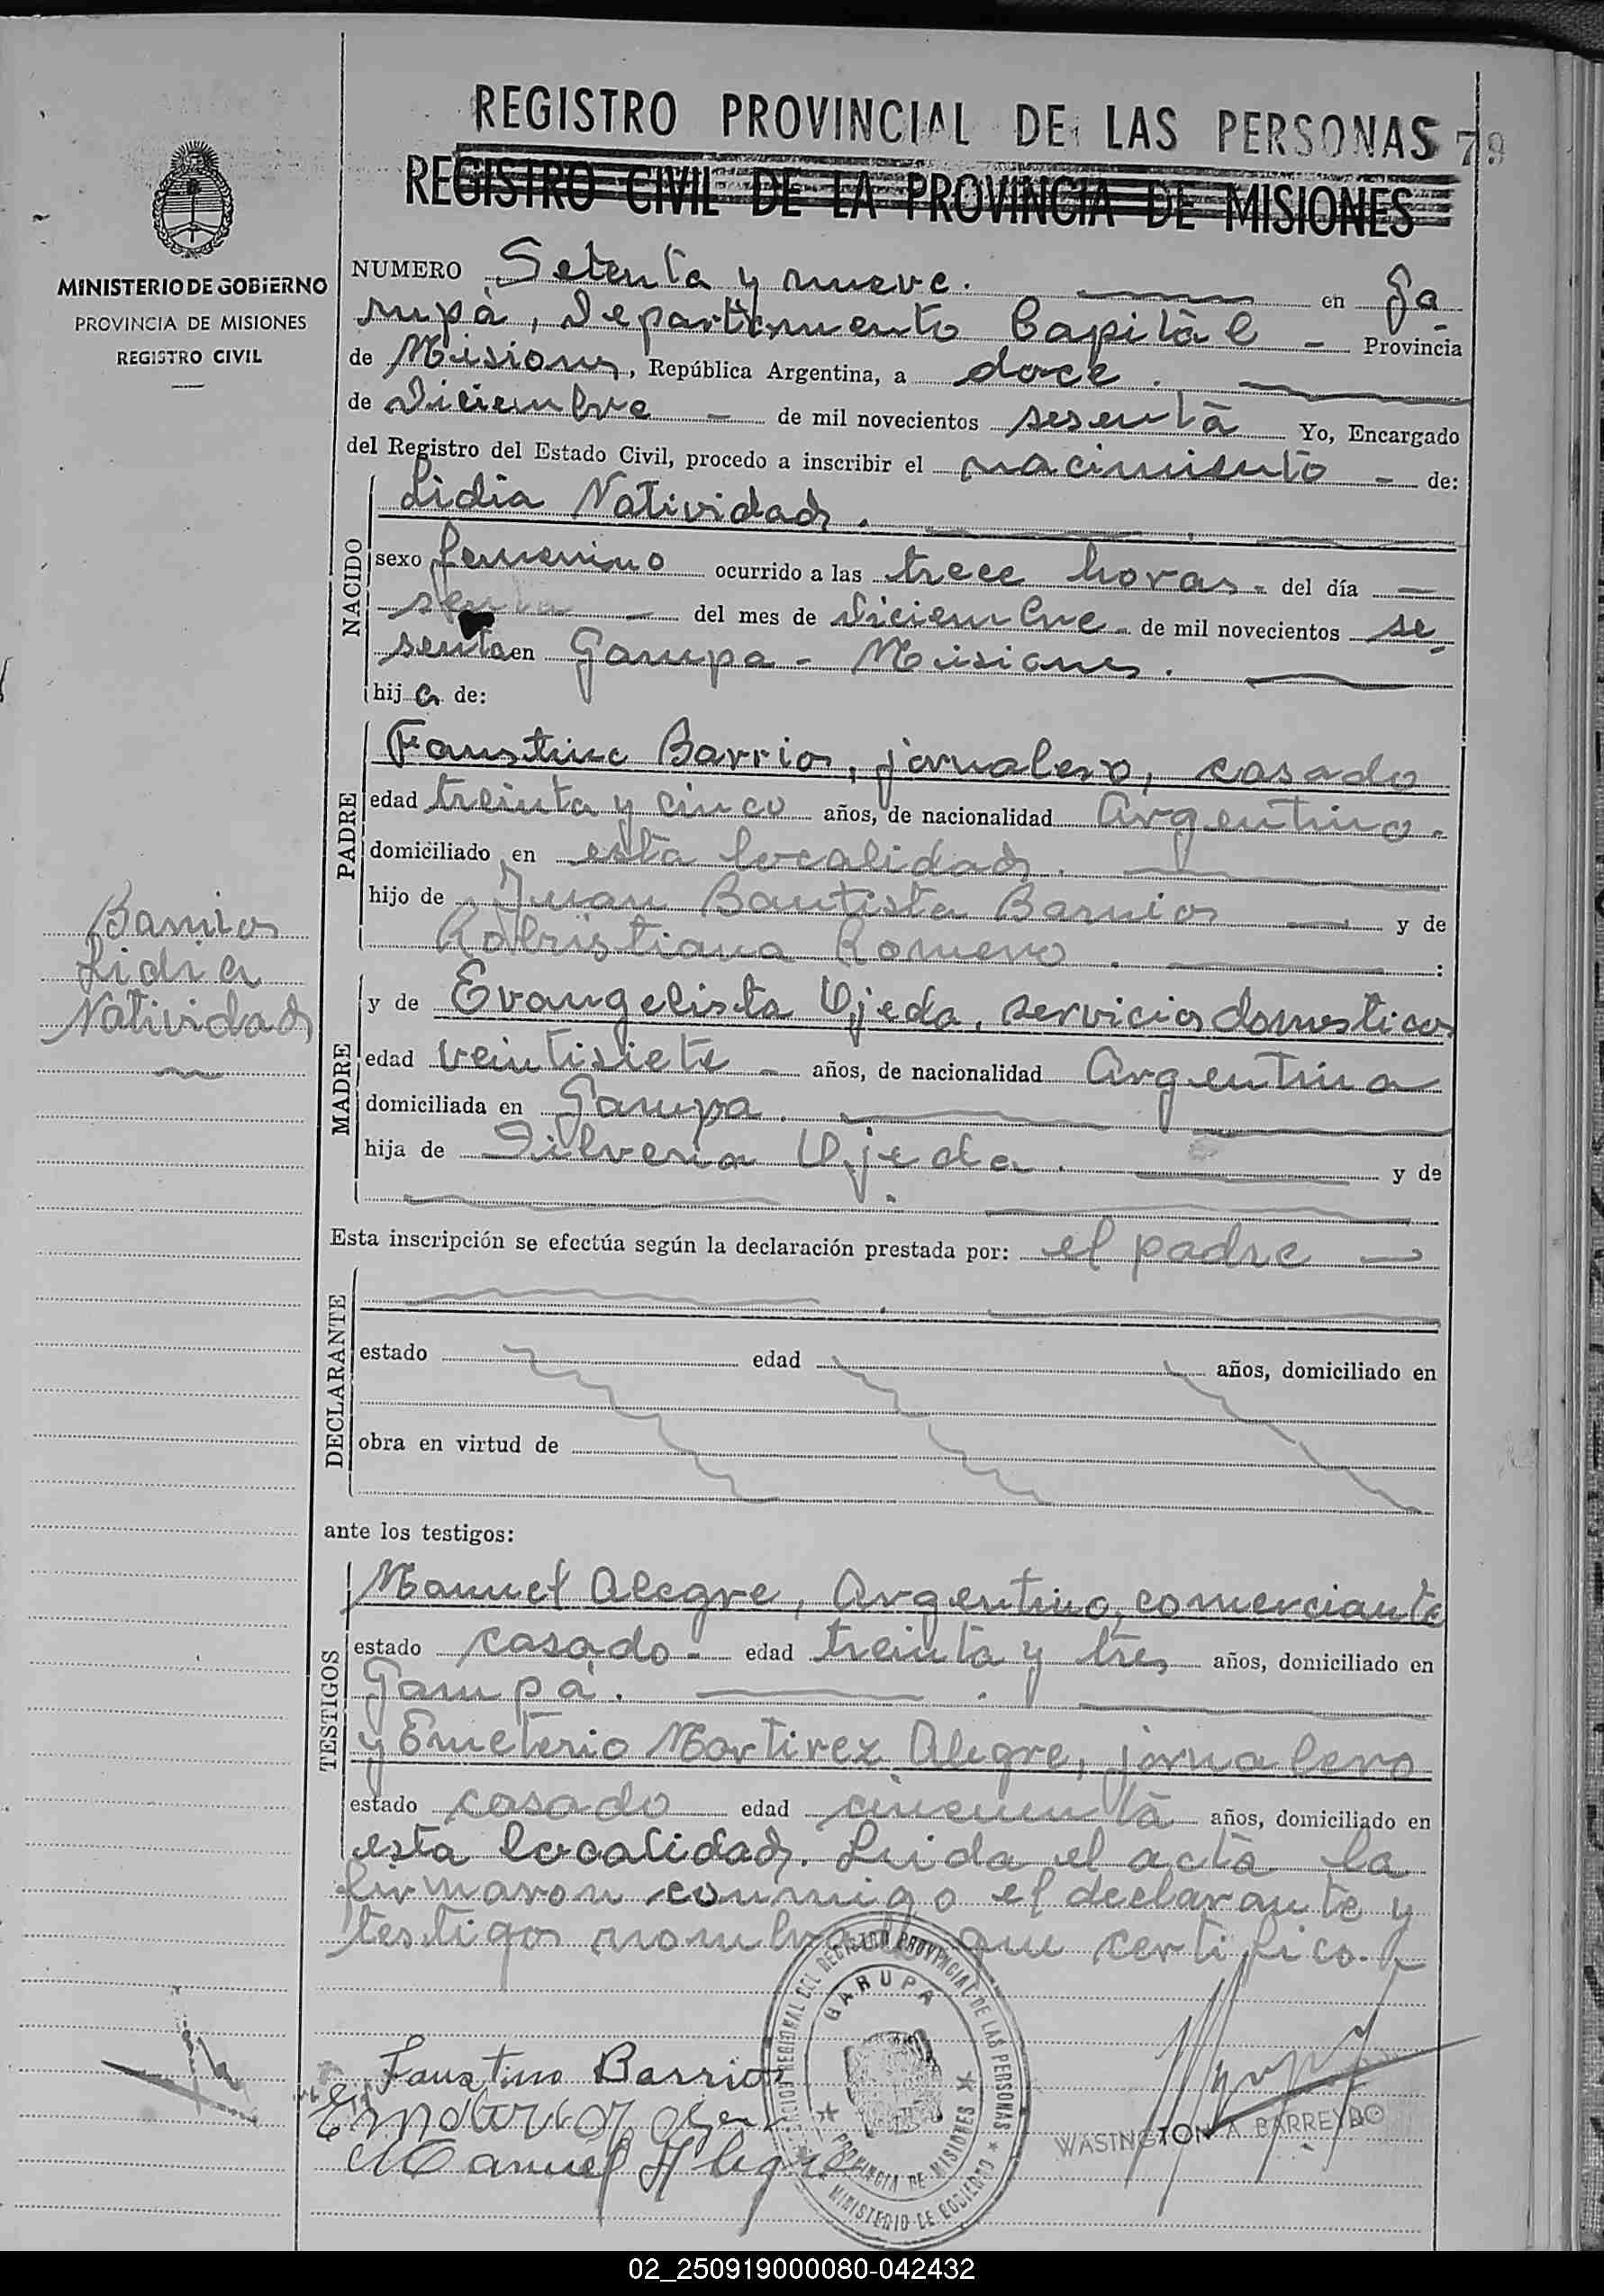 REGISTRO PROVINCIAL DE LAS PERSONAS 79
REGISTRO CIVIL DE LA PROVINCIA DE MISIONES
MINISTERIO DE GOBIERNO
PROVINCIA DE MISIONES
REGISTRO CIVIL
NUMERO Setenta y nueve. en Ga
rupá, Departamento Capital Provincia
de Misiones, República Argentina, a doce.
de Diciembre de mil novecientos sesenta Yo, Encargado
del Registro del Estado Civil, procedo a inscribir el nacimiento de:
NACIDO
Lidia Natividad.
sexo femenino ocurrido a las trece horas. del día
del mes de Diciembre de mil novecientos se
senta en Garupa - Misiones.
hija de:
PADRE
Faustino Barrios, jornalero, casado
edad treinta y cinco años, de nacionalidad Argentino.
domiciliado en esta localidad.
hijo de Juan Bautista Barrios y de
Romero.
Barrios
Lidia
Natividad
MADRE
y de Evangelista Ojeda, servicios domesticos
edad veintisiete años, de nacionalidad Argentina
domiciliada en Garupa.
hija de Silveria Ojeda. y de
Esta inscripción se efectúa según la declaración prestada por: el padre
DECLARANTE
estado edad años, domiciliado en
obra en virtud de
ante los testigos:
TESTIGOS
Manuel Alegre, Argentino, comerciante
estado casado - edad treinta y tres años, domiciliado en
Garupá.
y Emeterio Martirez Alegre, jornalero
estado casado edad cincuenta años, domiciliado en
esta localidad. Leida el acta la
firmaron conmigo el declarante y
testigos nombrados que certifico.
Faustino Barrios
Manuel Alegre
GARUPA
PROVINCIA DE MISIONES
REGIONAL DEL REGISTRO PROVINCIAL DE LAS PERSONAS
MINISTERIO DE GOBIERNO
WASINGTON A. BARREYRO
02_250919000080-042432